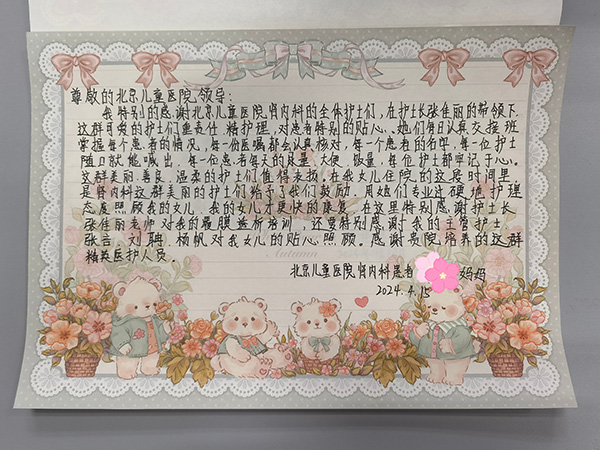 尊敬的北京儿童医院领导:
我特别的感谢北京儿童医院肾内科的全体护士们,在护士长张佳丽的带领下,
这群可爱的护士们重责任,精护理,对患者特别的贴心、她们每日认真交接班
掌握每个患者的情况,每一份医嘱都会认真核对,每个患者的名字,每一位护士
随口就能喊出,每一位患者每天的尿量、大便、饮量,每位护士都牢记于心。
这群美丽、善良、温柔的护士们值得表扬。在我女儿住院的这段时间里,
是肾内科这群美丽的护士们给予了我们鼓励,用她们专业过硬地护理
态度照顾我的女儿,我的女儿才更快的康复,在这里特别感谢护士长
张佳丽老师对我的腹膜透析培训,还要特别感谢我的主管护士
张言,刘聘,杨帆对我女儿的贴心照顾。感谢贵院培养的这群
精英医护人员。
Autumn
北京儿童医院肾内科患者 妈妈
2024.4.15